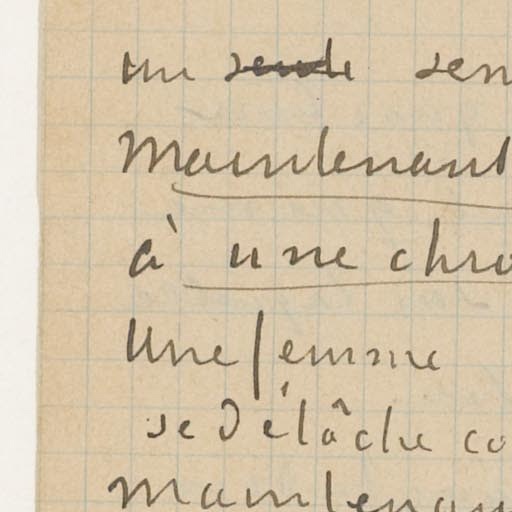 un sen
Maintenant
à une chro
Une femme
se détâche co
maintenan